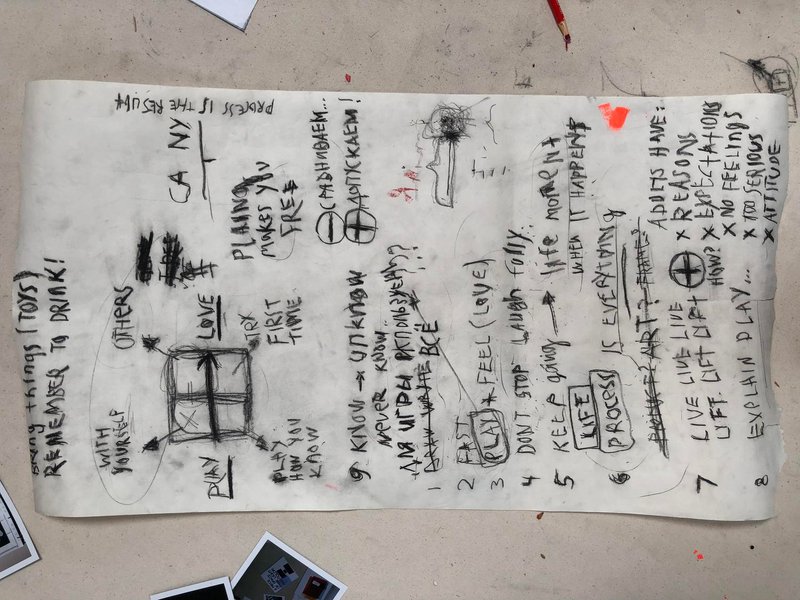 bring things (TOYS)
REMEMBER TO DRINK!
WITH YOURSELF
OTHERS
PLAY
LOVE
PLAY
HOW YOU
KNOW
TRY
FIRST
TIME
CA NY
PROCESS IS THE RESULT
MAKES YOU
FREE
ДОПУСКАЕМ!
9 KNOW → UNKNOW
NEVER KNOW...
ДЛЯ ИГРЫ ИСПОЛЬЗУЕМ ???
1 ВСЁ
2 FAST
3 PLAY + FEEL (LOVE)
4 DONT STOP LAUGH FULLY
5 KEEP going → life moment
WHEN IT HAPPENS
LIFE
PROCESS IS EVERYTHING
6 ART?
7 LIVE LIVE LIVE
LIFT LIFT LIFT
HOW?
ADULTS HAVE:
X REASONS
X EXPECTATIONS
X NO FEELINGS
X TOO SERIOUS
X ATTITUDE
8 EXPLAIN PLAY...